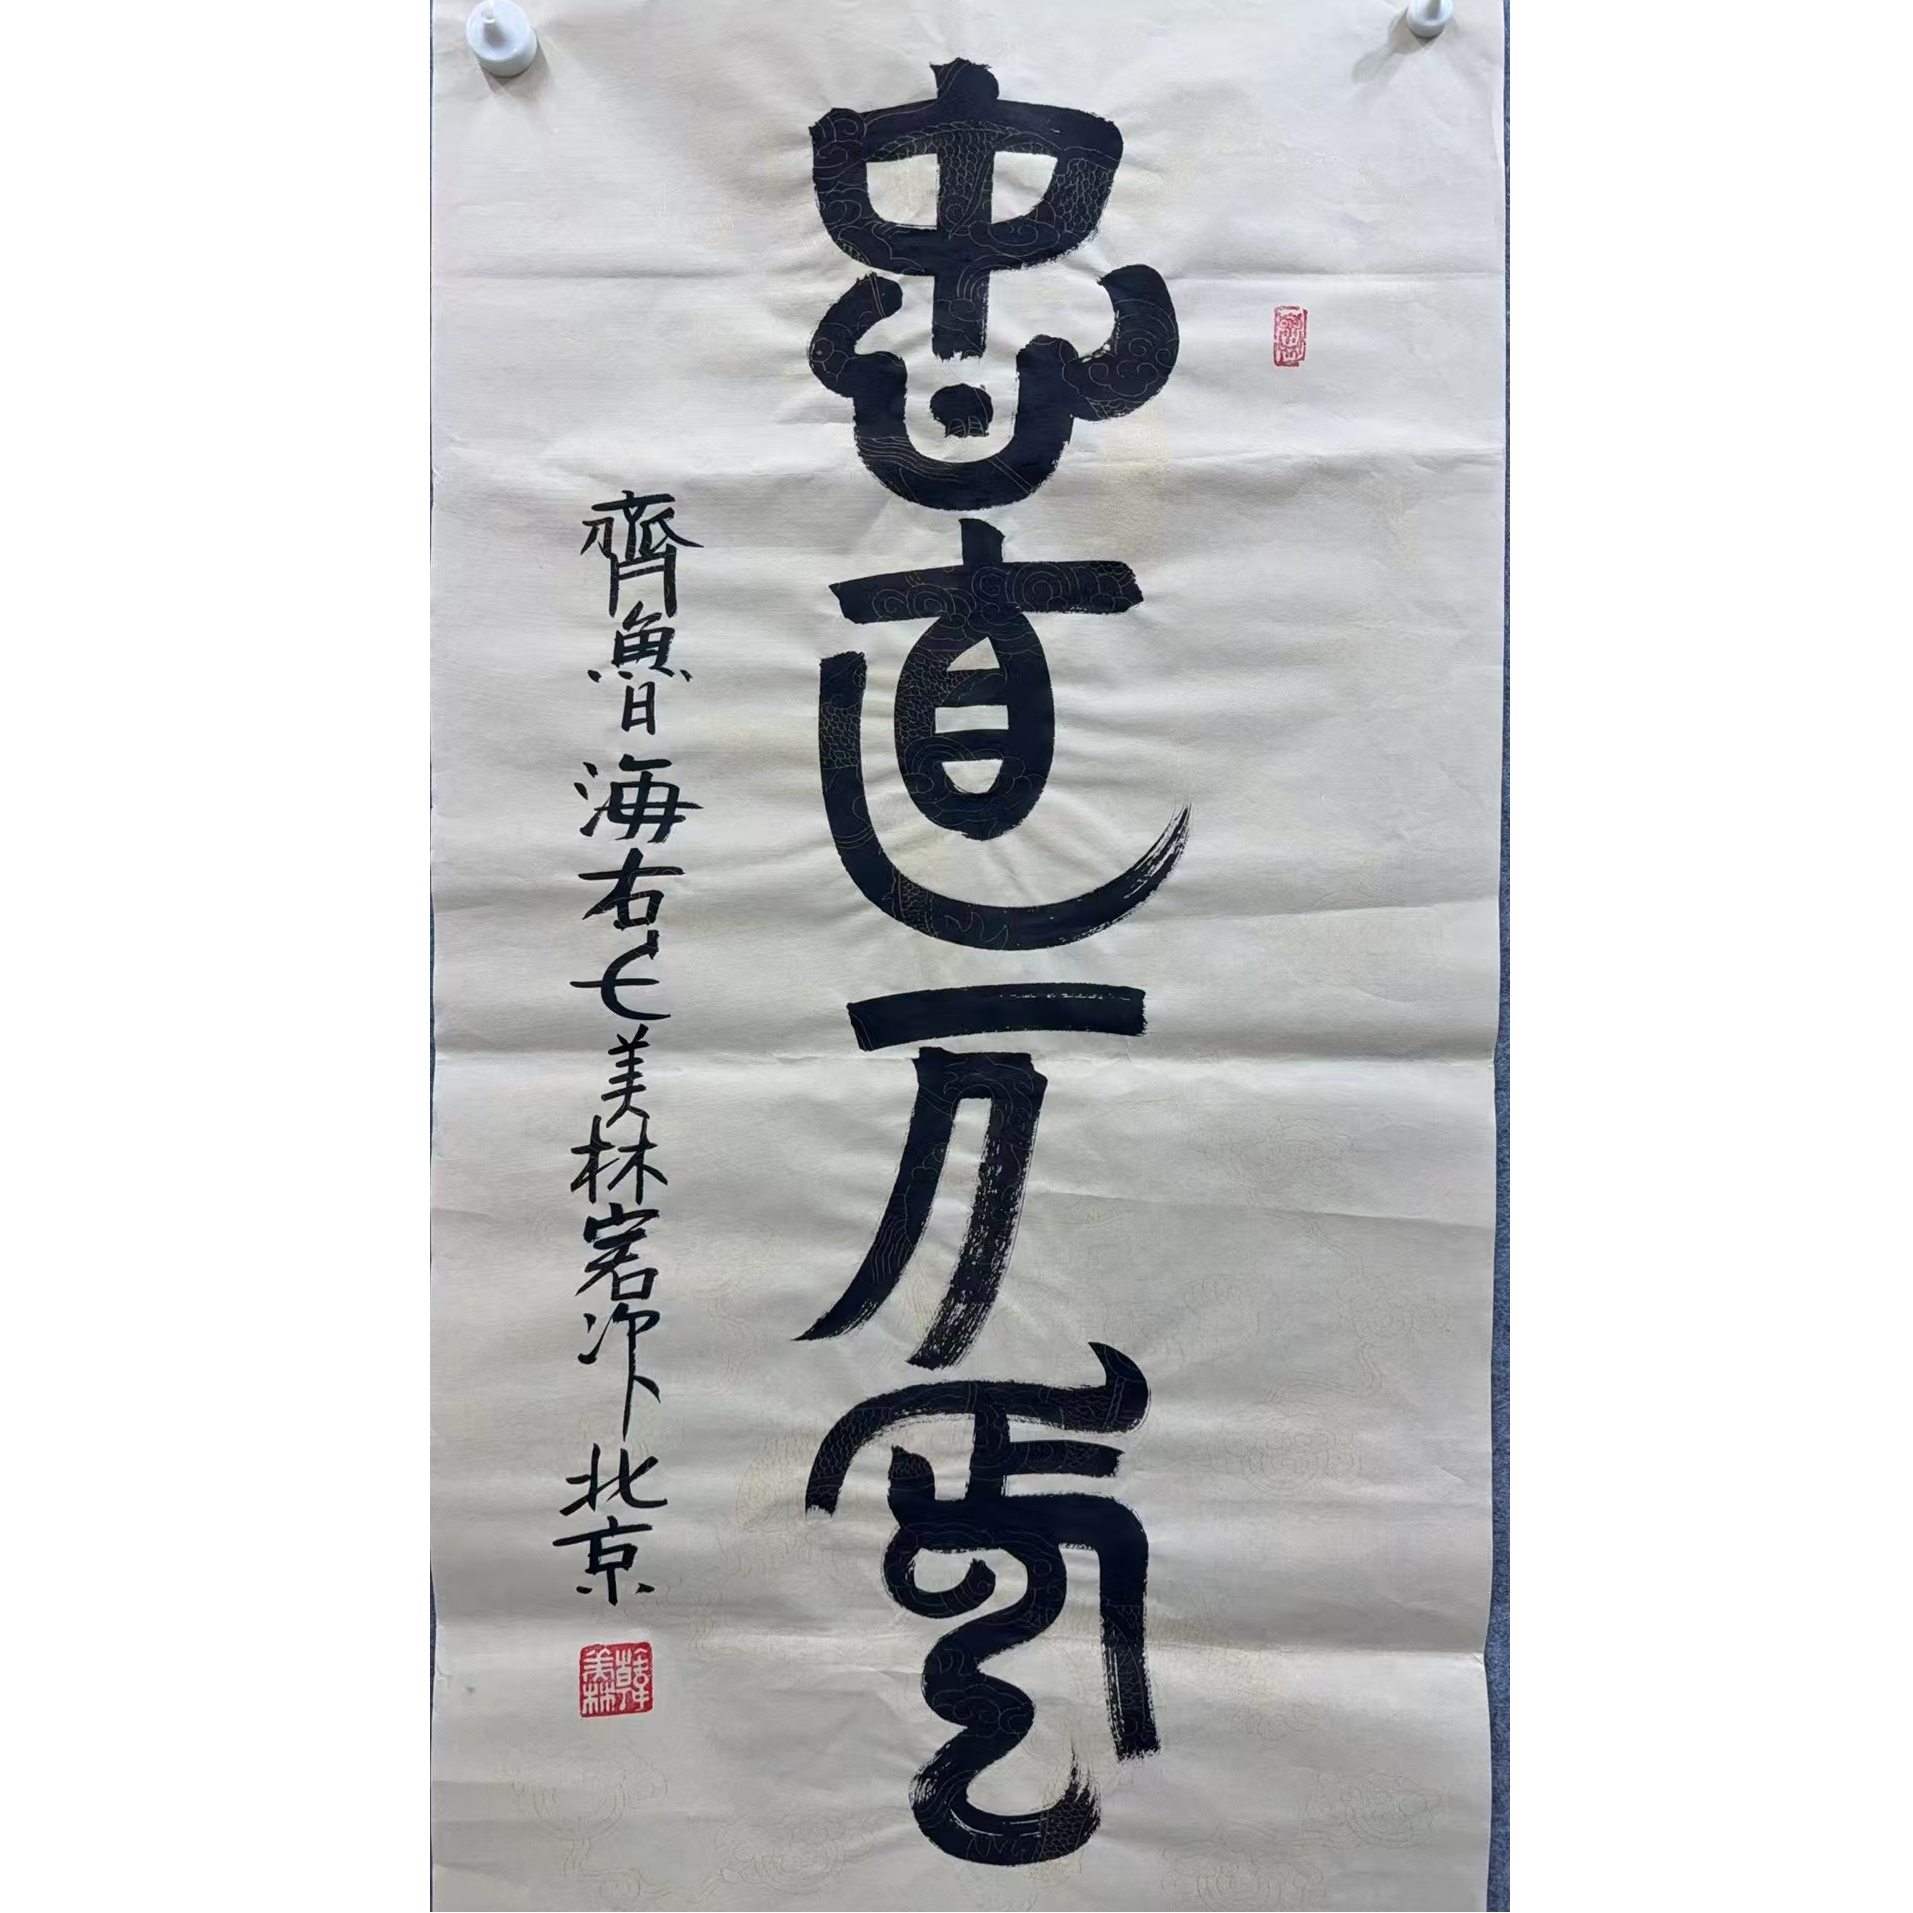 忠直万
齊魯海右七美林客次北京
韓美林